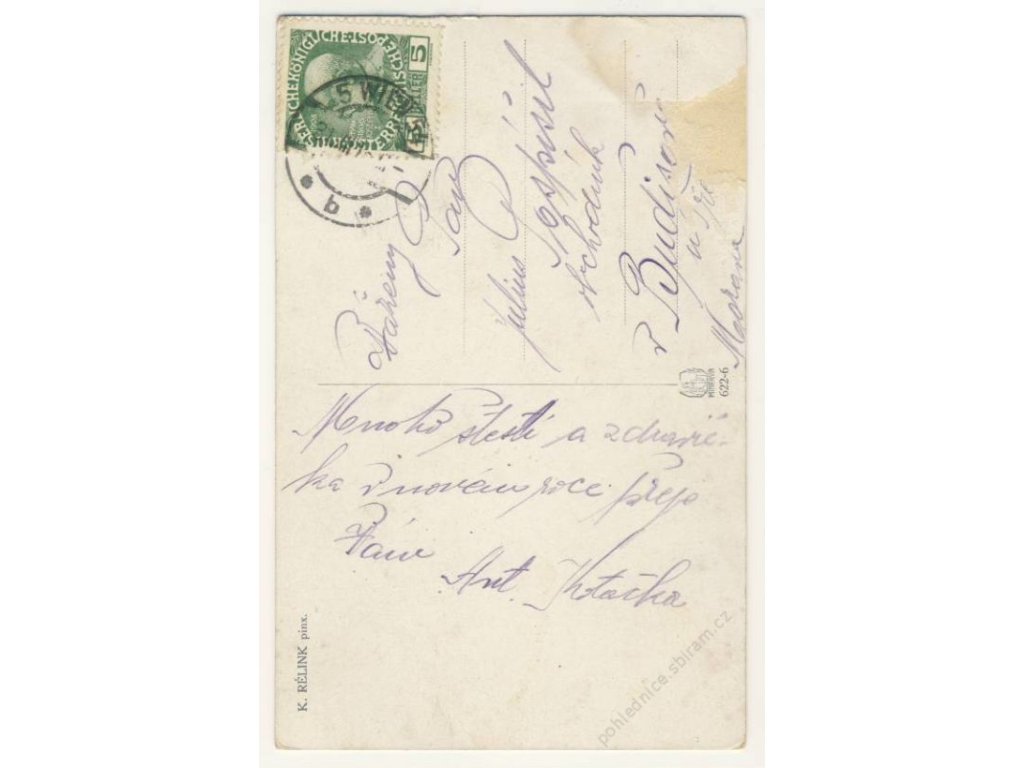 KAISERLICHE KÖNIGLICHE ÖSTERREICHISCHE POST
5 HELLER 5
WIEN
Vážený Pán
Pan
Julius Pospíšil
obchodník
v Budišově
u
Morava
MINERVA
622-6
Mnoho štěstí a zdravíč-
ka v novém roce přeje
Vám
Ant. Kotačka
K. RÉLINK pinx.
pohlednice.sbiram.cz